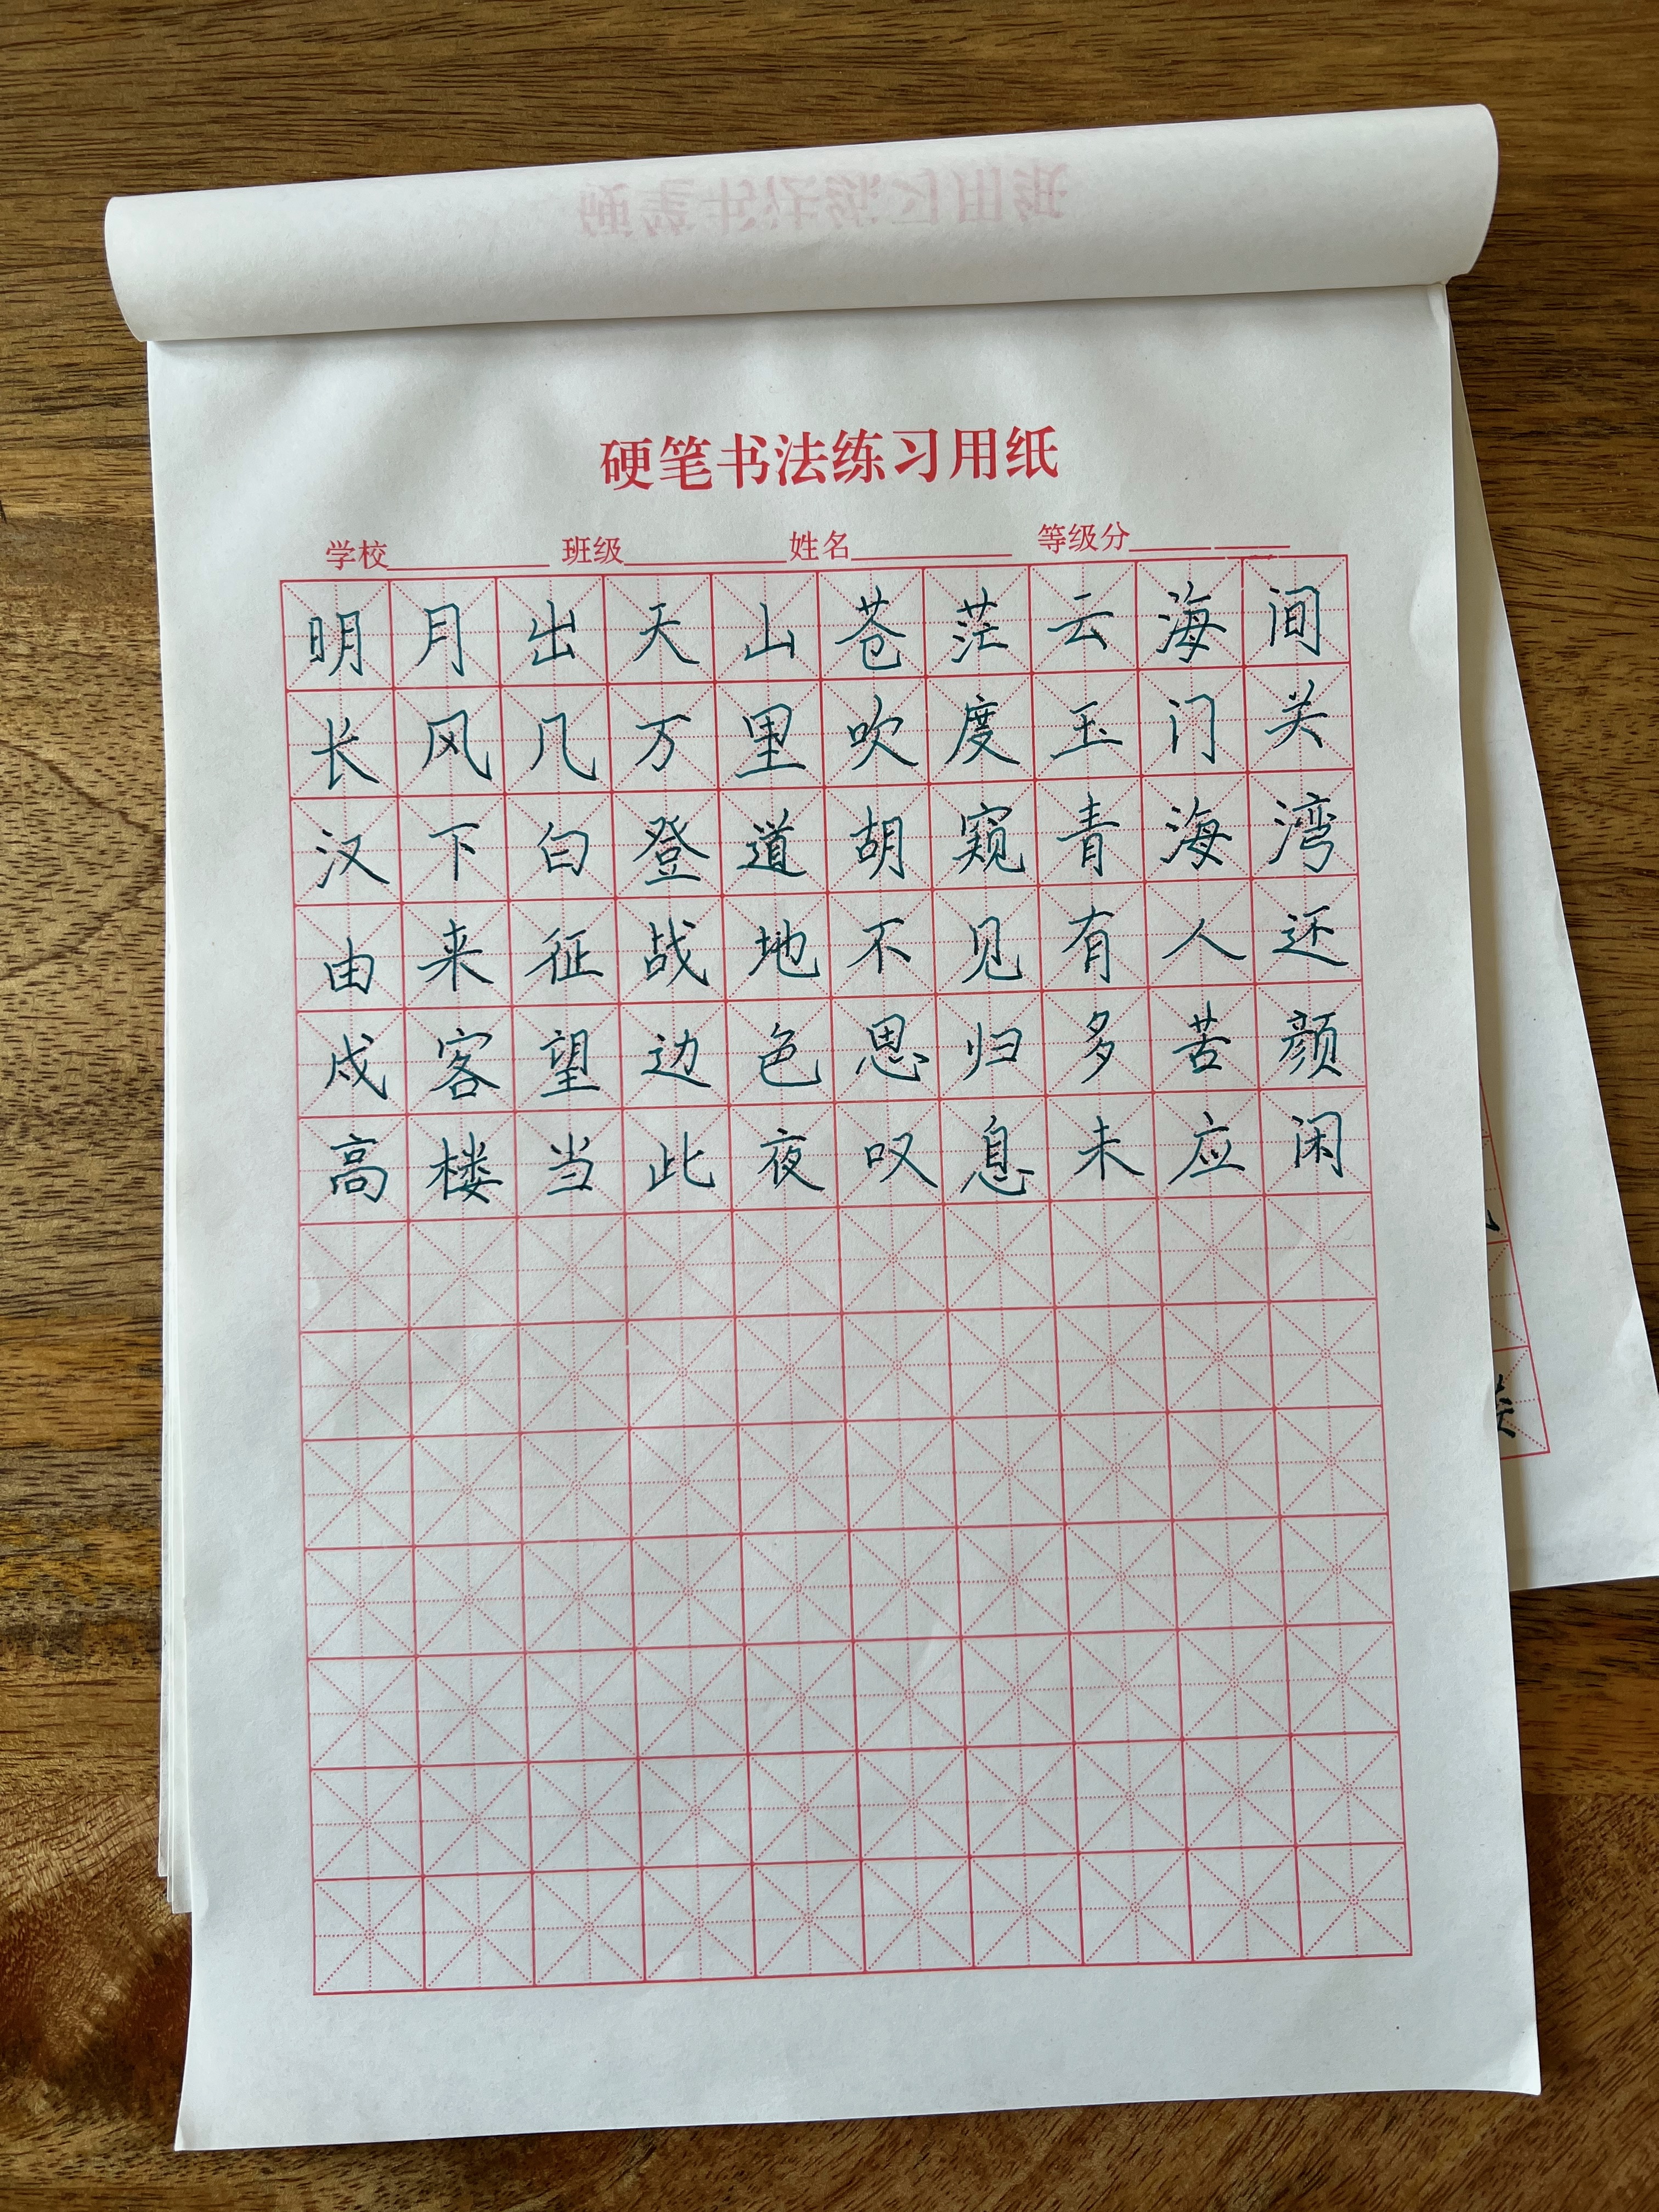 硬笔书法练习用纸
硬笔书法练习用纸
学校 班级 姓名 等级分
明月出天山苍茫云海间
长风几万里吹度玉门关
汉下白登道胡窥青海湾
由来征战地不见有人还
戍客望边色思归多苦颜
高楼当此夜叹息未应闲